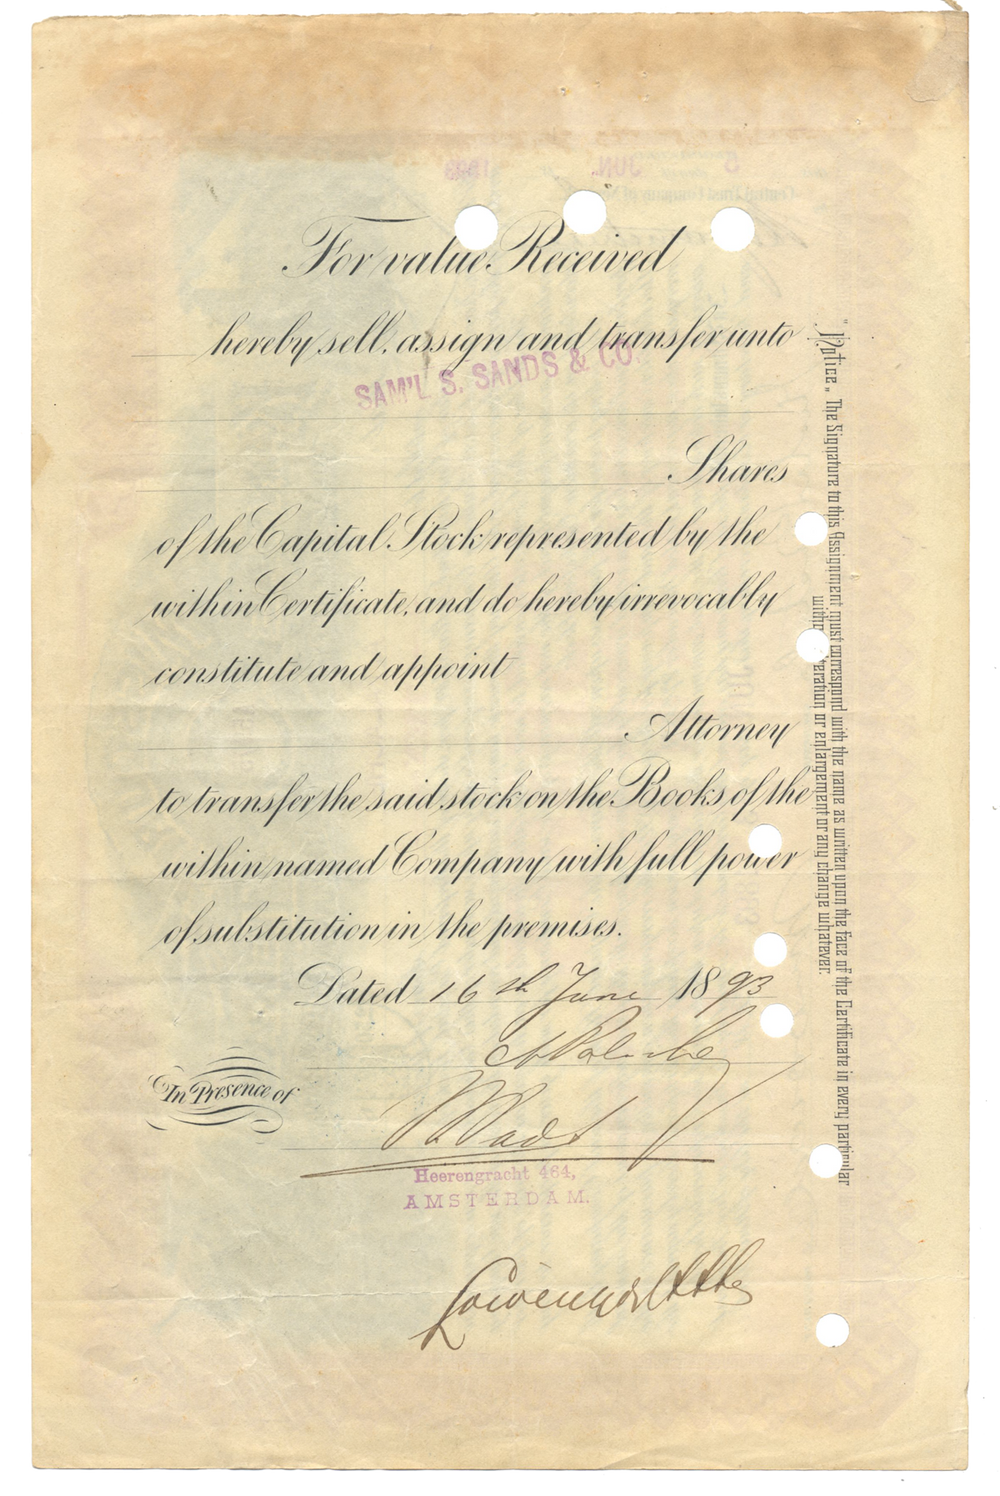 For value Received
hereby sell, assign and transfer unto
SAM'L S. SANDS & CO.
Shares
of the Capital Stock represented by the
within Certificate, and do hereby irrevocably
constitute and appoint
Attorney
to transfer the said stock on the Books of the
within named Company with full power
of substitution in the premises.
Dated 16th June 1893
In Presence of
Heerengracht 464,
AMSTERDAM.
"Notice„ The Signature to this Assignment must correspond with the name as written upon the face of the Certificate in every particular
without alteration or enlargement or any change whatever.
8 JUN. 1893